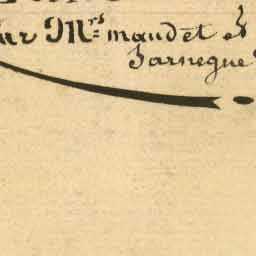 ur Mrs maudet et
Jarnegue